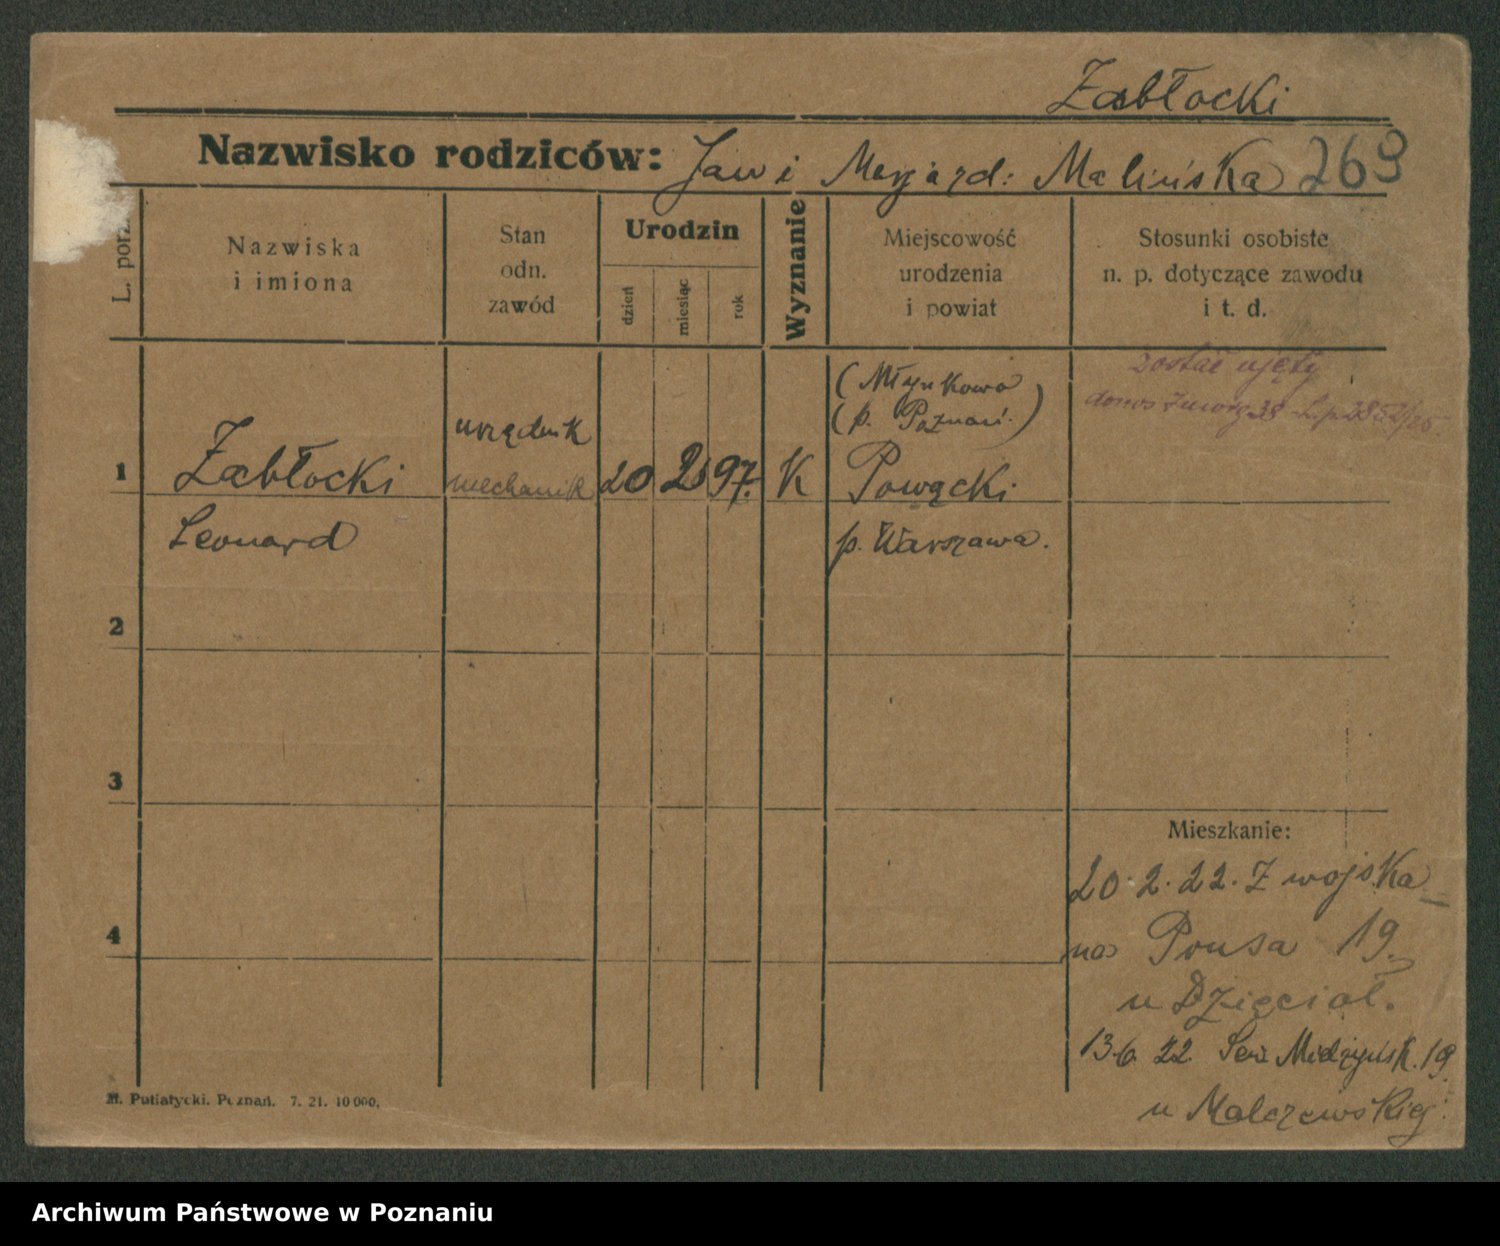 Zabłocki
Nazwisko rodziców: Jan i Marja zd: Malińska 269
L. porz.
Nazwiska
i imiona
Stan
odn.
zawód
Urodzin
dzień
miesiąc
rok
Wyznanie
Miejscowość
urodzenia
i powiat
Stosunki osobiste
n. p. dotyczące zawodu
i t. d.
został ujęty
donos
(Młynkowo)
(p. Poznań.)
urzędnik
1 Zabłocki mechanik 20 2 97. K Powącki
Leonard p. Warszawa.
2
3
Mieszkanie:
20.2.22. Z wojska
4
na Prusa 19.
u Dzięcioł.
13.6. 22 Sew. Mielżyńsk. 19.
u Malczewskiej.
M. Putiatycki. Poznań. 7. 21. 10 000.
Archiwum Państwowe w Poznaniu